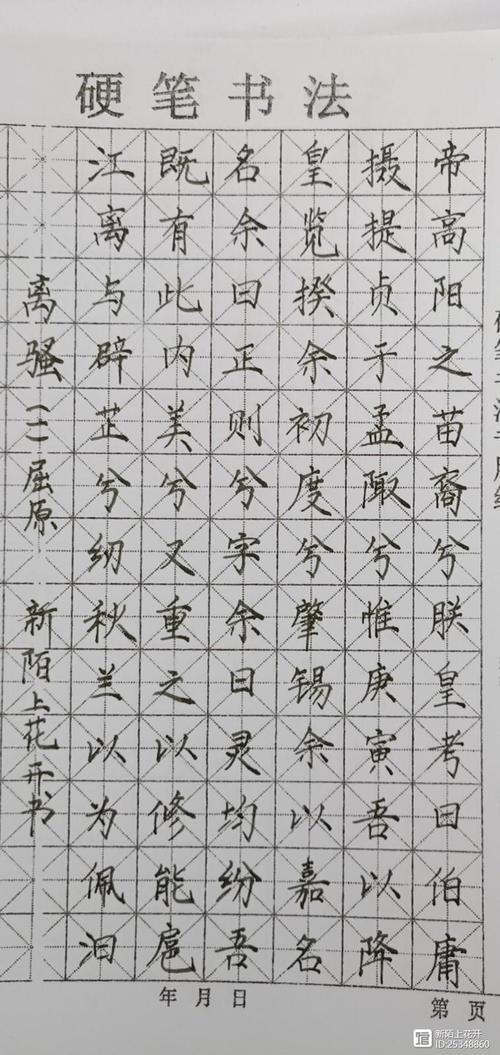 硬笔书法
帝高阳之苗裔兮朕皇考曰伯庸
摄提贞于孟陬兮惟庚寅吾以降
皇览揆余初度兮肇锡余以嘉名
名余曰正则兮字余曰灵均纷吾
既有此内美兮又重之以修能扈
江离与辟芷兮纫秋兰以为佩汩
离骚(一)屈原 新陌上花开书
年月日
第 页
新陌上花开
ID:25348860